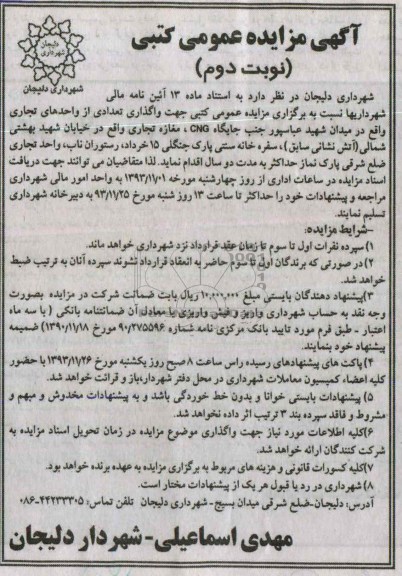 آگهی مزایده عمومی کتبی
(نوبت دوم)
دلیجان
شهرداری
شهرداری دلیجان
شهرداری دلیجان در نظر دارد به استناد ماده ۱۳ آئین نامه مالی
شهرداریها نسبت به برگزاری مزایده عمومی کتبی جهت واگذاری تعدادی از واحدهای تجاری
واقع در میدان شهید عباسپور جنب جایگاه CNG ، مغازه تجاری واقع در خیابان شهید بهشتی
شمالی (آتش نشانی سابق) ، سفره خانه سنتی پارک جنگلی ۱۵ خرداد، رستوران ناب، واحد تجاری
ضلع شرقی پارک نماز حداکثر به مدت دو سال اقدام نماید. لذا متقاضیان می توانند جهت دریافت
اسناد مزایده در ساعات اداری از روز چهارشنبه مورخه ۱۳۹۳/۱۱/۰۱ به واحد امور مالی شهرداری
مراجعه و پیشنهادات خود را حداکثر تا ساعت ۱۳ روز شنبه مورخ ۹۳/۱۱/۲۵ به دبیرخانه شهرداری
تسلیم نمایند.
-شرایط مزایده:
۱) سپرده نفرات اول تا سوم تا زمان عقد قرارداد نزد شهرداری خواهد ماند.
۲) در صورتی که برندگان اول تا سوم حاضر به انعقاد قرارداد نشوند سپرده آنان به ترتیب ضبط
خواهد شد.
۳) پیشنهاد دهندگان بایستی مبلغ ۱۰,۰۰۰,۰۰۰ ریال بابت ضمانت شرکت در مزایده بصورت
وجه نقد به حساب شهرداری واریز و فیش واریزی یا معادل آن ضمانتنامه بانکی ( با سه ماه
اعتبار - طبق فرم مورد تایید بانک مرکزی نامه شماره ۹۰/۲۷۵۵۹۶ مورخ ۱۳۹۰/۱۱/۱۸) ضمیمه
پیشنهاد خود بنمایند.
۴) پاکت های پیشنهادهای رسیده راس ساعت ۸ صبح روز یکشنبه مورخ ۱۳۹۳/۱۱/۲۶ با حضور
کلیه اعضاء کمیسیون معاملات شهرداری در محل دفتر شهردار باز و قرائت خواهد شد.
۵) پیشنهادات بایستی خوانا و بدون خط خوردگی باشد و به پیشنهادات مخدوش و مبهم و
مشروط و فاقد سپرده بند ۳ ترتیب اثر داده نخواهد شد.
۶) کلیه اطلاعات مورد نیاز جهت واگذاری موضوع مزایده در زمان تحویل اسناد مزایده به
شرکت کنندگان ارائه خواهد شد.
۷) کلیه کسورات قانونی و هزینه های مربوط به برگزاری مزایده به عهده برنده خواهد بود.
۸) شهرداری در رد یا قبول هر یک از پیشنهادات مختار است.
آدرس: دلیجان-ضلع شرقی میدان بسیج- شهرداری دلیجان تلفن تماس: ۴۴۲۳۳۳۰۵-۰۸۶
مهدی اسماعیلی- شهردار دلیجان